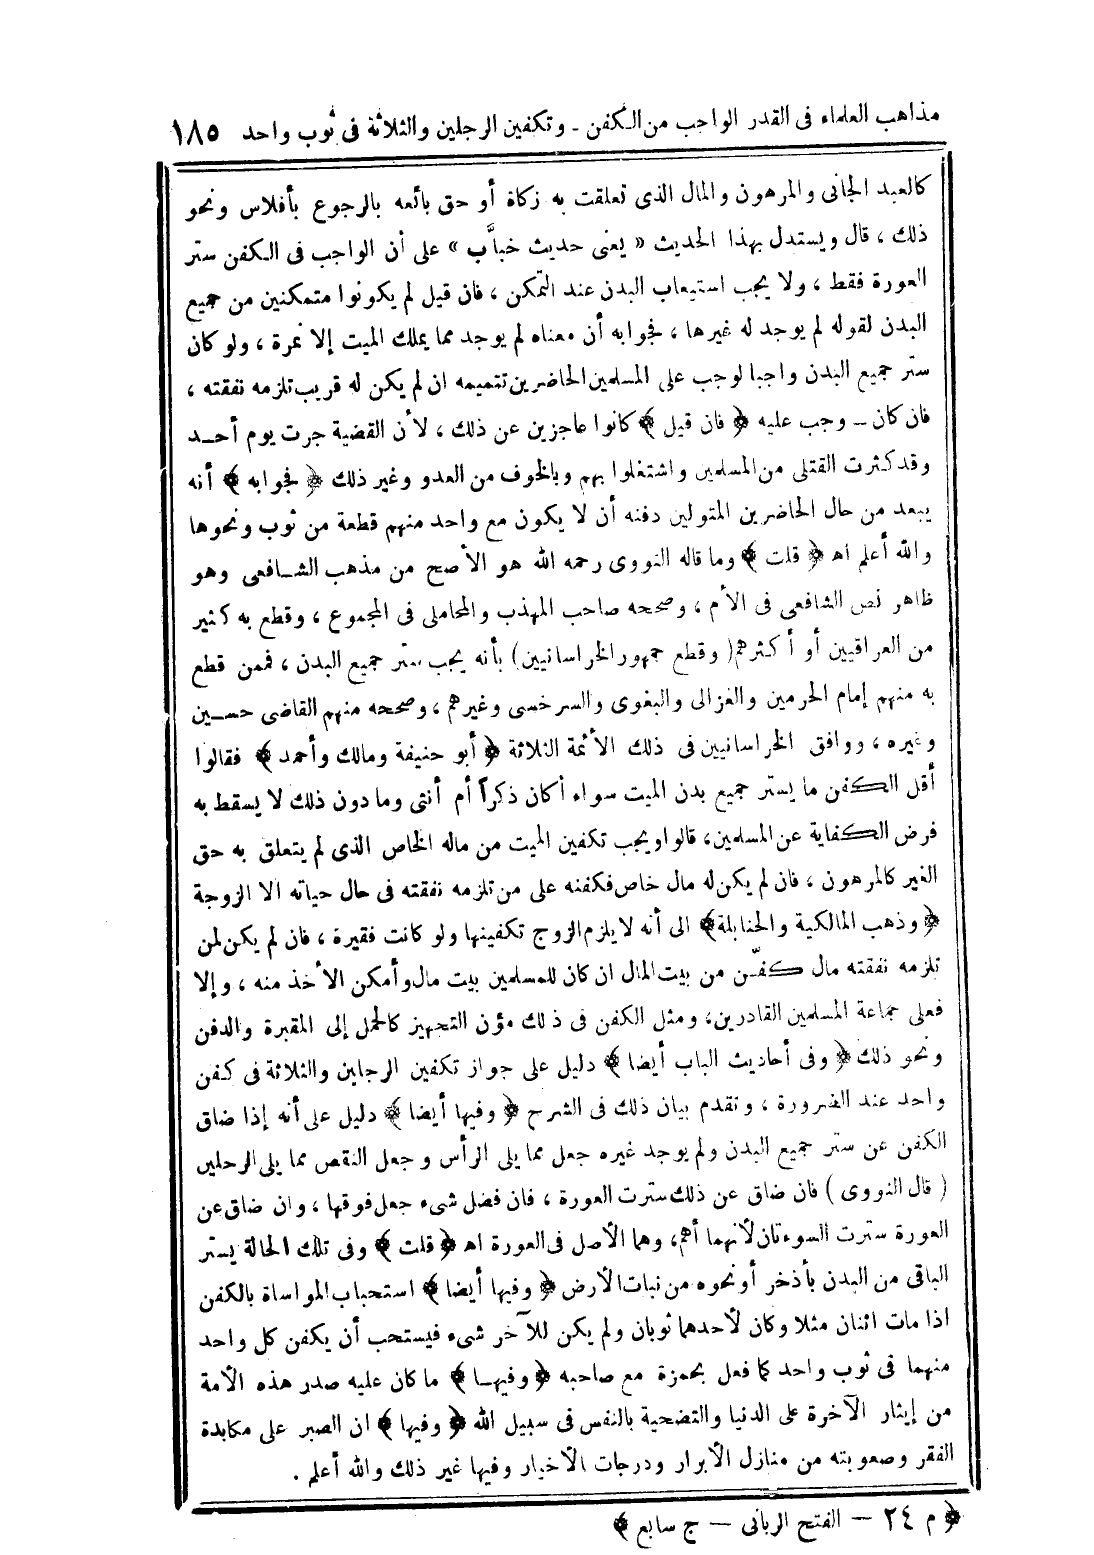 مذاهب العلماء فى القدر الواجب من الكفن ـ وتكفين الرجلين والثلاثة فى ثوب واحد ١٨٥
كالعبد الجانى والمرهون والمال الذى تعلقت به زكاة أو حق بائعه بالرجوع بأفلاس ونحو
ذلك ، قال ويستدل بهذا الحديث « يعنى حديث خبَّاب » على أن الواجب فى الكفن ستر
العورة فقط ، ولا يجب استيعاب البدن عند التمكن ، فان قيل لم يكونوا متمكنين من جميع
البدن لقوله لم يوجد له غيرها ، فجوابه أن معناه لم يوجد مما يملك الميت إلا نمرة ، ولو كان
ستر جميع البدن واجبا لوجب على المسلمين الحاضرين تتميمه ان لم يكن له قريب تلزمه نفقته ،
فان كان ـ وجب عليه ﴿ فان قيل ﴾ كانوا عاجزين عن ذلك ، لأن القضية جرت يوم أحـد
وقد كثرت القتلى من المسلمين واشتغلوا بهم وبالخوف من العدو وغير ذلك ﴿ فجوابه ﴾ أنه
يبعد من حال الحاضرين المتولين دفنه أن لا يكون مع واحد منهم قطعة من ثوب ونحوها
والله أعلم اهـ ﴿ قلت ﴾ وما قاله النووى رحمه الله هو الأصح من مذهب الشـافعى وهو
ظاهر نص الشافعى فى الأم ، وصححه صاحب المهذب والمحاملى فى المجموع ، وقطع به كثير
من العراقيين أو أكثرهم ( وقطع جمهور الخراسانيين ) بأنه يجب ستر جميع البدن ، فممن قطع
به منهم إمام الحرمين والغزالى والبغوى والسرخسى وغيرهم ، وصححه منهم القاضى حسـين
وغيره ، ووافق الخراسانيين فى ذلك الأئمة الثلاثة ﴿ أبو حنيفة ومالك وأحمد ﴾ فقالوا
أقل الكفن ما يستر جميع بدن الميت سواء أكان ذكراً أم أنثى وما دون ذلك لا يسقط به
فرض الكفاية عن المسلمين ، قالوا ويجب تكفين الميت من ماله الخاص الذى لم يتعلق به حق
الغير كالمرهون ، فان لم يكن له مال خاص فكفنه على من تلزمه نفقته فى حال حياته الا الزوجة
﴿ وذهب المالكية والحنابلة ﴾ الى أنه لا يلزم الزوج تكفينها ولو كانت فقيرة ، فان لم يكن لمن
تلزمه نفقته مال كفّن من بيت المال ان كان للمسلمين بيت مال وأمكن الأخذ منه ، وإلا
فعلى جماعة المسلمين القادرين ، ومثل الكفن فى ذلك مؤن التجهيز كالحمل إلى المقبرة والدفن
ونحو ذلك ﴿ وفى أحاديث الباب أيضا ﴾ دليل على جواز تكفين الرجلين والثلاثة فى كفن
واحد عند الضرورة ، وتقدم بيان ذلك فى الشرح ﴿ وفيها أيضا ﴾ دليل على أنه إذا ضاق
الكفن عن ستر جميع البدن ولم يوجد غيره جعل مما يلى الرأس وجعل النقص مما يلى الرجلين
( قال النووى ) فان ضاق عن ذلك سترت العورة ، فان فضل شىء جعل فوقها ، وان ضاق عن
العورة سترت السوءتان لأنهما أهم ، وهما الأصل فى العورة اهـ ﴿ قلت ﴾ وفى تلك الحالة يستر
الباقى من البدن بأذخر أو نحوه من نبات الأرض ﴿ وفيها أيضا ﴾ استحباب المواساة بالكفن
اذا مات اثنان مثلا وكان لأحدهما ثوبان ولم يكن للآخر شىء فيستحب أن يكفن كل واحد
منهما فى ثوب واحد كما فعل بحمزة مع صاحبه ﴿ وفيهـا ﴾ ما كان عليه صدر هذه الأمة
من إيثار الآخرة على الدنيا والتضحية بالنفس فى سبيل الله ﴿ وفيها ﴾ ان الصبر على مكابدة
الفقر وصعوبته من منازل الأبرار ودرجات الأخيار وفيها غير ذلك والله أعلم .
﴿ م ٢٤ — الفتح الربانى — ج سابع ﴾